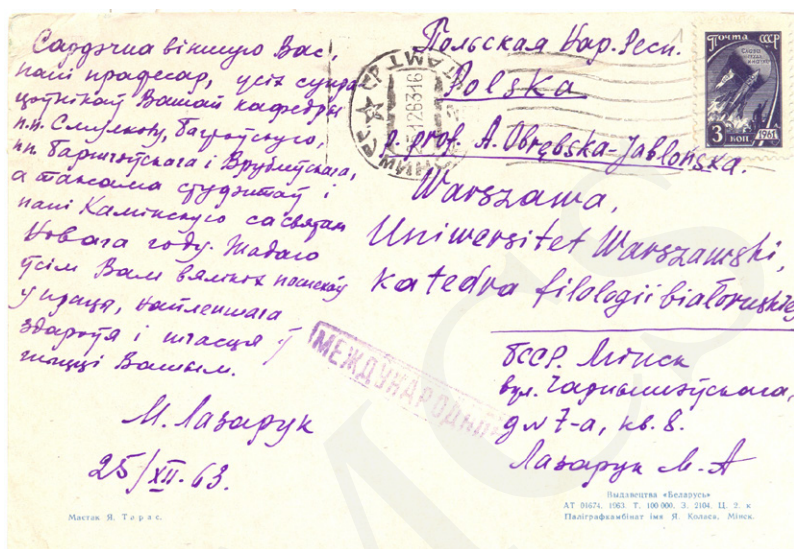 Сардэчна віншую Вас,
пані прафесар, усіх супра-
цоўнікаў Вашай кафедры
п.п. Смулкову, Баброўскую,
пп. Баршчэўскага і Врублеўскага,
а таксама студэнтаў і
пані Камінскую са святам
Новага году. Жадаю
ўсім Вам вялікіх поспехаў
у працы, найлепшага
здароўя і шчасця ў
жыцці Вашым.
М. Лазарук
25/XII-63.
Мастак Я. Тарас.
Почта СССР
3 КОП
1961
Польская Нар. Респ.
Polska
p. prof. A. Obrębska-Jabłońska.
Warszawa,
Uniwersitet Warszawski,
Katedra filologii białoruskiej
МЕЖДУНАРОДНОЕ
БССР. Мінск
вул. Чарнышэўскага,
д N 7-а, кв. 8.
Лазарук М. А
Выдавецтва «Беларусь»
АТ 01674. 1963. Т. 100 000. З. 2104. Ц. 2. к
Паліграфкамбінат імя Я. Коласа, Мінск.